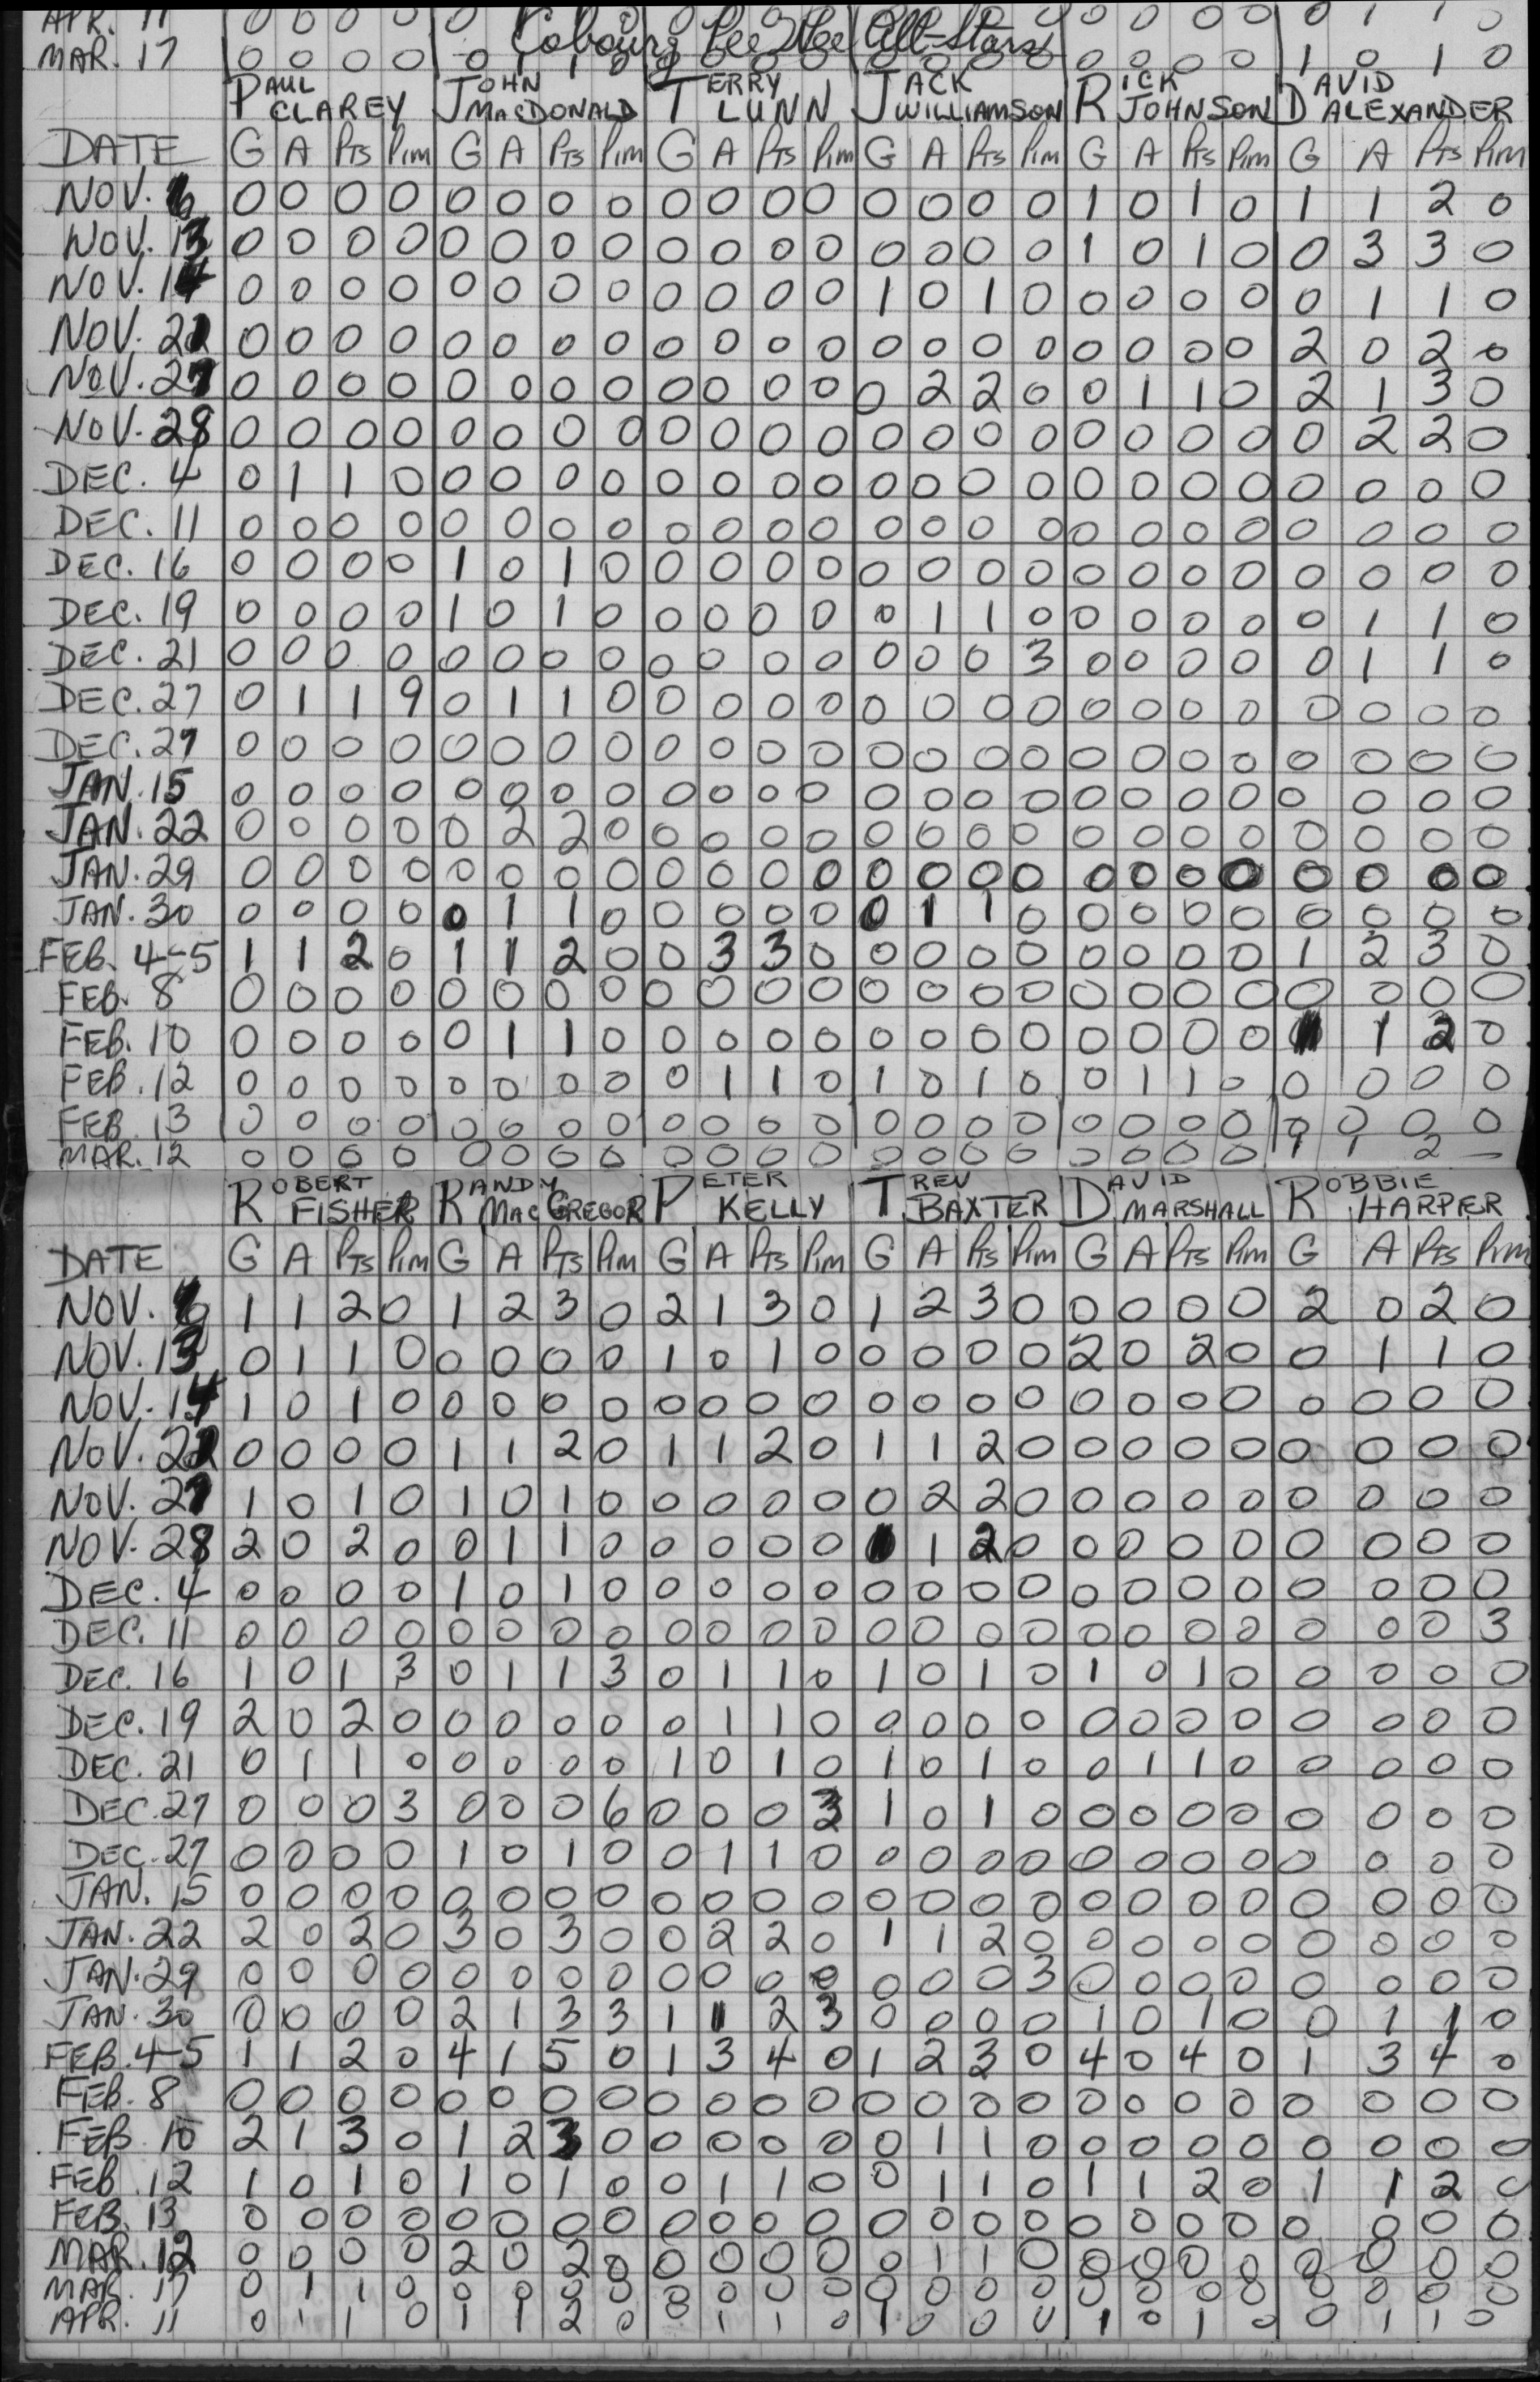 APR. 11 0 0 0 0 0 0 0 0 0 0 0 0 0 0 0 0 0 0 0 0 0 1 1 0
Cobourg Pee Wee All-Stars
MAR. 17 0 0 0 0 0 1 1 0 0 0 0 0 0 0 0 0 0 0 0 0 1 0 1 0
PAUL CLAREY JOHN MACDONALD TERRY LUNN JACK WILLIAMSON RICK JOHNSON DAVID ALEXANDER
DATE G A PTS PIM G A PTS PIM G A PTS PIM G A PTS PIM G A PTS PIM G A PTS PIM
NOV. 6 0 0 0 0 0 0 0 0 0 0 0 0 0 0 0 0 1 0 1 0 1 1 2 0
NOV. 13 0 0 0 0 0 0 0 0 0 0 0 0 0 0 0 0 1 0 1 0 0 3 3 0
NOV. 14 0 0 0 0 0 0 0 0 0 0 0 0 1 0 1 0 0 0 0 0 0 1 1 0
NOV. 21 0 0 0 0 0 0 0 0 0 0 0 0 0 0 0 0 0 0 0 0 2 0 2 0
NOV. 27 0 0 0 0 0 0 0 0 0 0 0 0 0 2 2 0 0 1 1 0 2 1 3 0
NOV. 28 0 0 0 0 0 0 0 0 0 0 0 0 0 0 0 0 0 0 0 0 0 2 2 0
DEC. 4 0 1 1 0 0 0 0 0 0 0 0 0 0 0 0 0 0 0 0 0 0 0 0 0
DEC. 11 0 0 0 0 0 0 0 0 0 0 0 0 0 0 0 0 0 0 0 0 0 0 0 0
DEC. 16 0 0 0 0 1 0 1 0 0 0 0 0 0 0 0 0 0 0 0 0 0 0 0 0
DEC. 19 0 0 0 0 1 0 1 0 0 0 0 0 0 1 1 0 0 0 0 0 0 1 1 0
DEC. 21 0 0 0 0 0 0 0 0 0 0 0 0 0 0 0 3 0 0 0 0 0 1 1 0
DEC. 27 0 1 1 9 0 1 1 0 0 0 0 0 0 0 0 0 0 0 0 0 0 0 0 0
DEC. 27 0 0 0 0 0 0 0 0 0 0 0 0 0 0 0 0 0 0 0 0 0 0 0 0
JAN. 15 0 0 0 0 0 0 0 0 0 0 0 0 0 0 0 0 0 0 0 0 0 0 0 0
JAN. 22 0 0 0 0 0 2 2 0 0 0 0 0 0 0 0 0 0 0 0 0 0 0 0 0
JAN. 29 0 0 0 0 0 0 0 0 0 0 0 0 0 0 0 0 0 0 0 0 0 0 0 0
JAN. 30 0 0 0 0 0 1 1 0 0 0 0 0 0 1 1 0 0 0 0 0 0 0 0 0
FEB. 4-5 1 1 2 0 1 1 2 0 0 3 3 0 0 0 0 0 0 0 0 0 1 2 3 0
FEB. 8 0 0 0 0 0 0 0 0 0 0 0 0 0 0 0 0 0 0 0 0 0 0 0 0
FEB. 10 0 0 0 0 0 1 1 0 0 0 0 0 0 0 0 0 0 0 0 0 1 1 2 0
FEB. 12 0 0 0 0 0 0 0 0 0 1 1 0 1 0 1 0 0 1 1 0 0 0 0 0
FEB. 13 0 0 0 0 0 0 0 0 0 0 0 0 0 0 0 0 0 0 0 0 0 0 0 0
MAR. 12 0 0 0 0 0 0 0 0 0 0 0 0 0 0 0 0 0 0 0 0 1 1 2 –
ROBERT FISHER RANDY MACGREGOR PETER KELLY TREV BAXTER DAVID MARSHALL ROBBIE HARPER
DATE G A PTS PIM G A PTS PIM G A PTS PIM G A PTS PIM G A PTS PIM G A PTS PIM
NOV. 6 1 1 2 0 1 2 3 0 2 1 3 0 1 2 3 0 0 0 0 0 2 0 2 0
NOV. 13 0 1 1 0 0 0 0 0 1 0 1 0 0 0 0 0 2 0 2 0 0 1 1 0
NOV. 14 1 0 1 0 0 0 0 0 0 0 0 0 0 0 0 0 0 0 0 0 0 0 0 0
NOV. 21 0 0 0 0 1 1 2 0 1 1 2 0 1 1 2 0 0 0 0 0 0 0 0 0
NOV. 27 1 0 1 0 1 0 1 0 0 0 0 0 0 2 2 0 0 0 0 0 0 0 0 0
NOV. 28 2 0 2 0 0 1 1 0 0 0 0 0 1 1 2 0 0 0 0 0 0 0 0 0
DEC. 4 0 0 0 0 1 0 1 0 0 0 0 0 0 0 0 0 0 0 0 0 0 0 0 0
DEC. 11 0 0 0 0 0 0 0 0 0 0 0 0 0 0 0 0 0 0 0 0 0 0 0 3
DEC. 16 1 0 1 3 0 1 1 3 0 1 1 0 1 0 1 0 1 0 1 0 0 0 0 0
DEC. 19 2 0 2 0 0 0 0 0 0 1 1 0 0 0 0 0 0 0 0 0 0 0 0 0
DEC. 21 0 1 1 0 0 0 0 0 1 0 1 0 1 0 1 0 0 1 1 0 0 0 0 0
DEC. 27 0 0 0 3 0 0 0 6 0 0 0 3 1 0 1 0 0 0 0 0 0 0 0 0
DEC. 27 0 0 0 0 1 0 1 0 0 1 1 0 0 0 0 0 0 0 0 0 0 0 0 0
JAN. 15 0 0 0 0 0 0 0 0 0 0 0 0 0 0 0 0 0 0 0 0 0 0 0 0
JAN. 22 2 0 2 0 3 0 3 0 0 2 2 0 1 1 2 0 0 0 0 0 0 0 0 0
JAN. 29 0 0 0 0 0 0 0 0 0 0 0 0 0 0 0 3 0 0 0 0 0 0 0 0
JAN. 30 0 0 0 0 2 1 3 3 1 1 2 3 0 0 0 0 1 0 1 0 0 1 1 0
FEB. 4-5 1 1 2 0 4 1 5 0 1 3 4 0 1 2 3 0 4 0 4 0 1 3 4 0
FEB. 8 0 0 0 0 0 0 0 0 0 0 0 0 0 0 0 0 0 0 0 0 0 0 0 0
FEB. 10 2 1 3 0 1 2 3 0 0 0 0 0 0 1 1 0 0 0 0 0 0 0 0 0
FEB. 12 1 0 1 0 1 0 1 0 0 1 1 0 0 1 1 0 1 1 2 0 1 1 2 0
FEB. 13 0 0 0 0 0 0 0 0 0 0 0 0 0 0 0 0 0 0 0 0 0 0 0 0
MAR. 12 0 0 0 0 2 0 2 0 0 0 0 0 0 1 1 0 0 0 0 0 0 0 0 0
MAR. 17 0 1 1 0 0 0 0 0 0 0 0 0 0 0 0 0 0 0 0 0 0 0 0 0
APR. 11 0 1 1 0 1 1 2 0 0 1 1 0 1 0 0 0 1 0 1 0 0 1 1 0